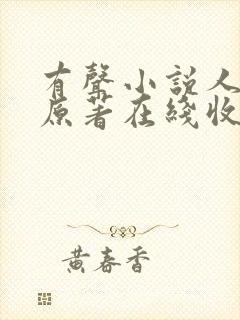 有聲小説人
原著在綫收
黄春香